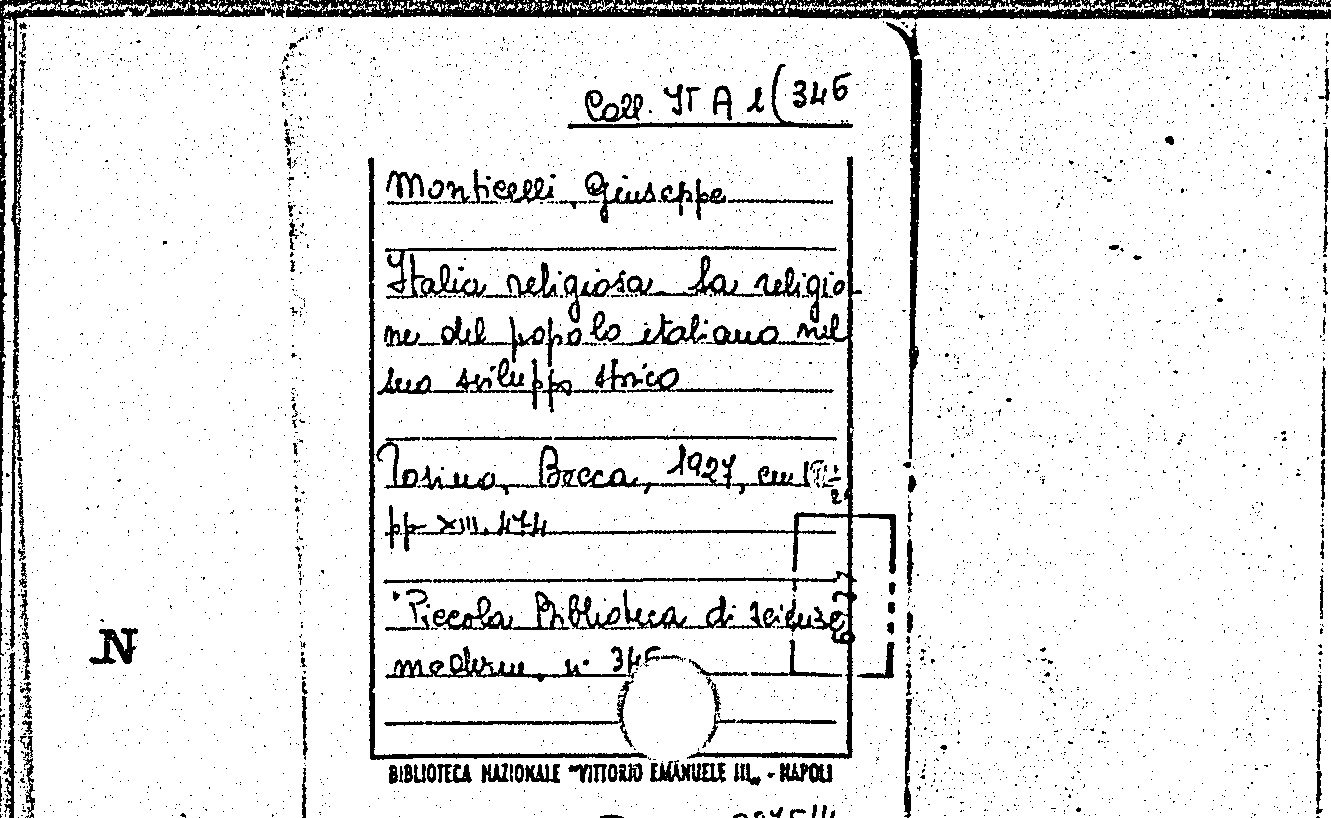 Coll. IT A l (345
Monticelli, Giuseppe
Italia religiosa. La religio-
ne del popolo italiano nel
suo sviluppo storico
Torino, Bocca, 1927, cm
pp XIII. 474
"Piccola Biblioteca di scienze
moderne, n. 345
N
BIBLIOTECA NAZIONALE "VITTORIO EMANUELE III„ - NAPOLI